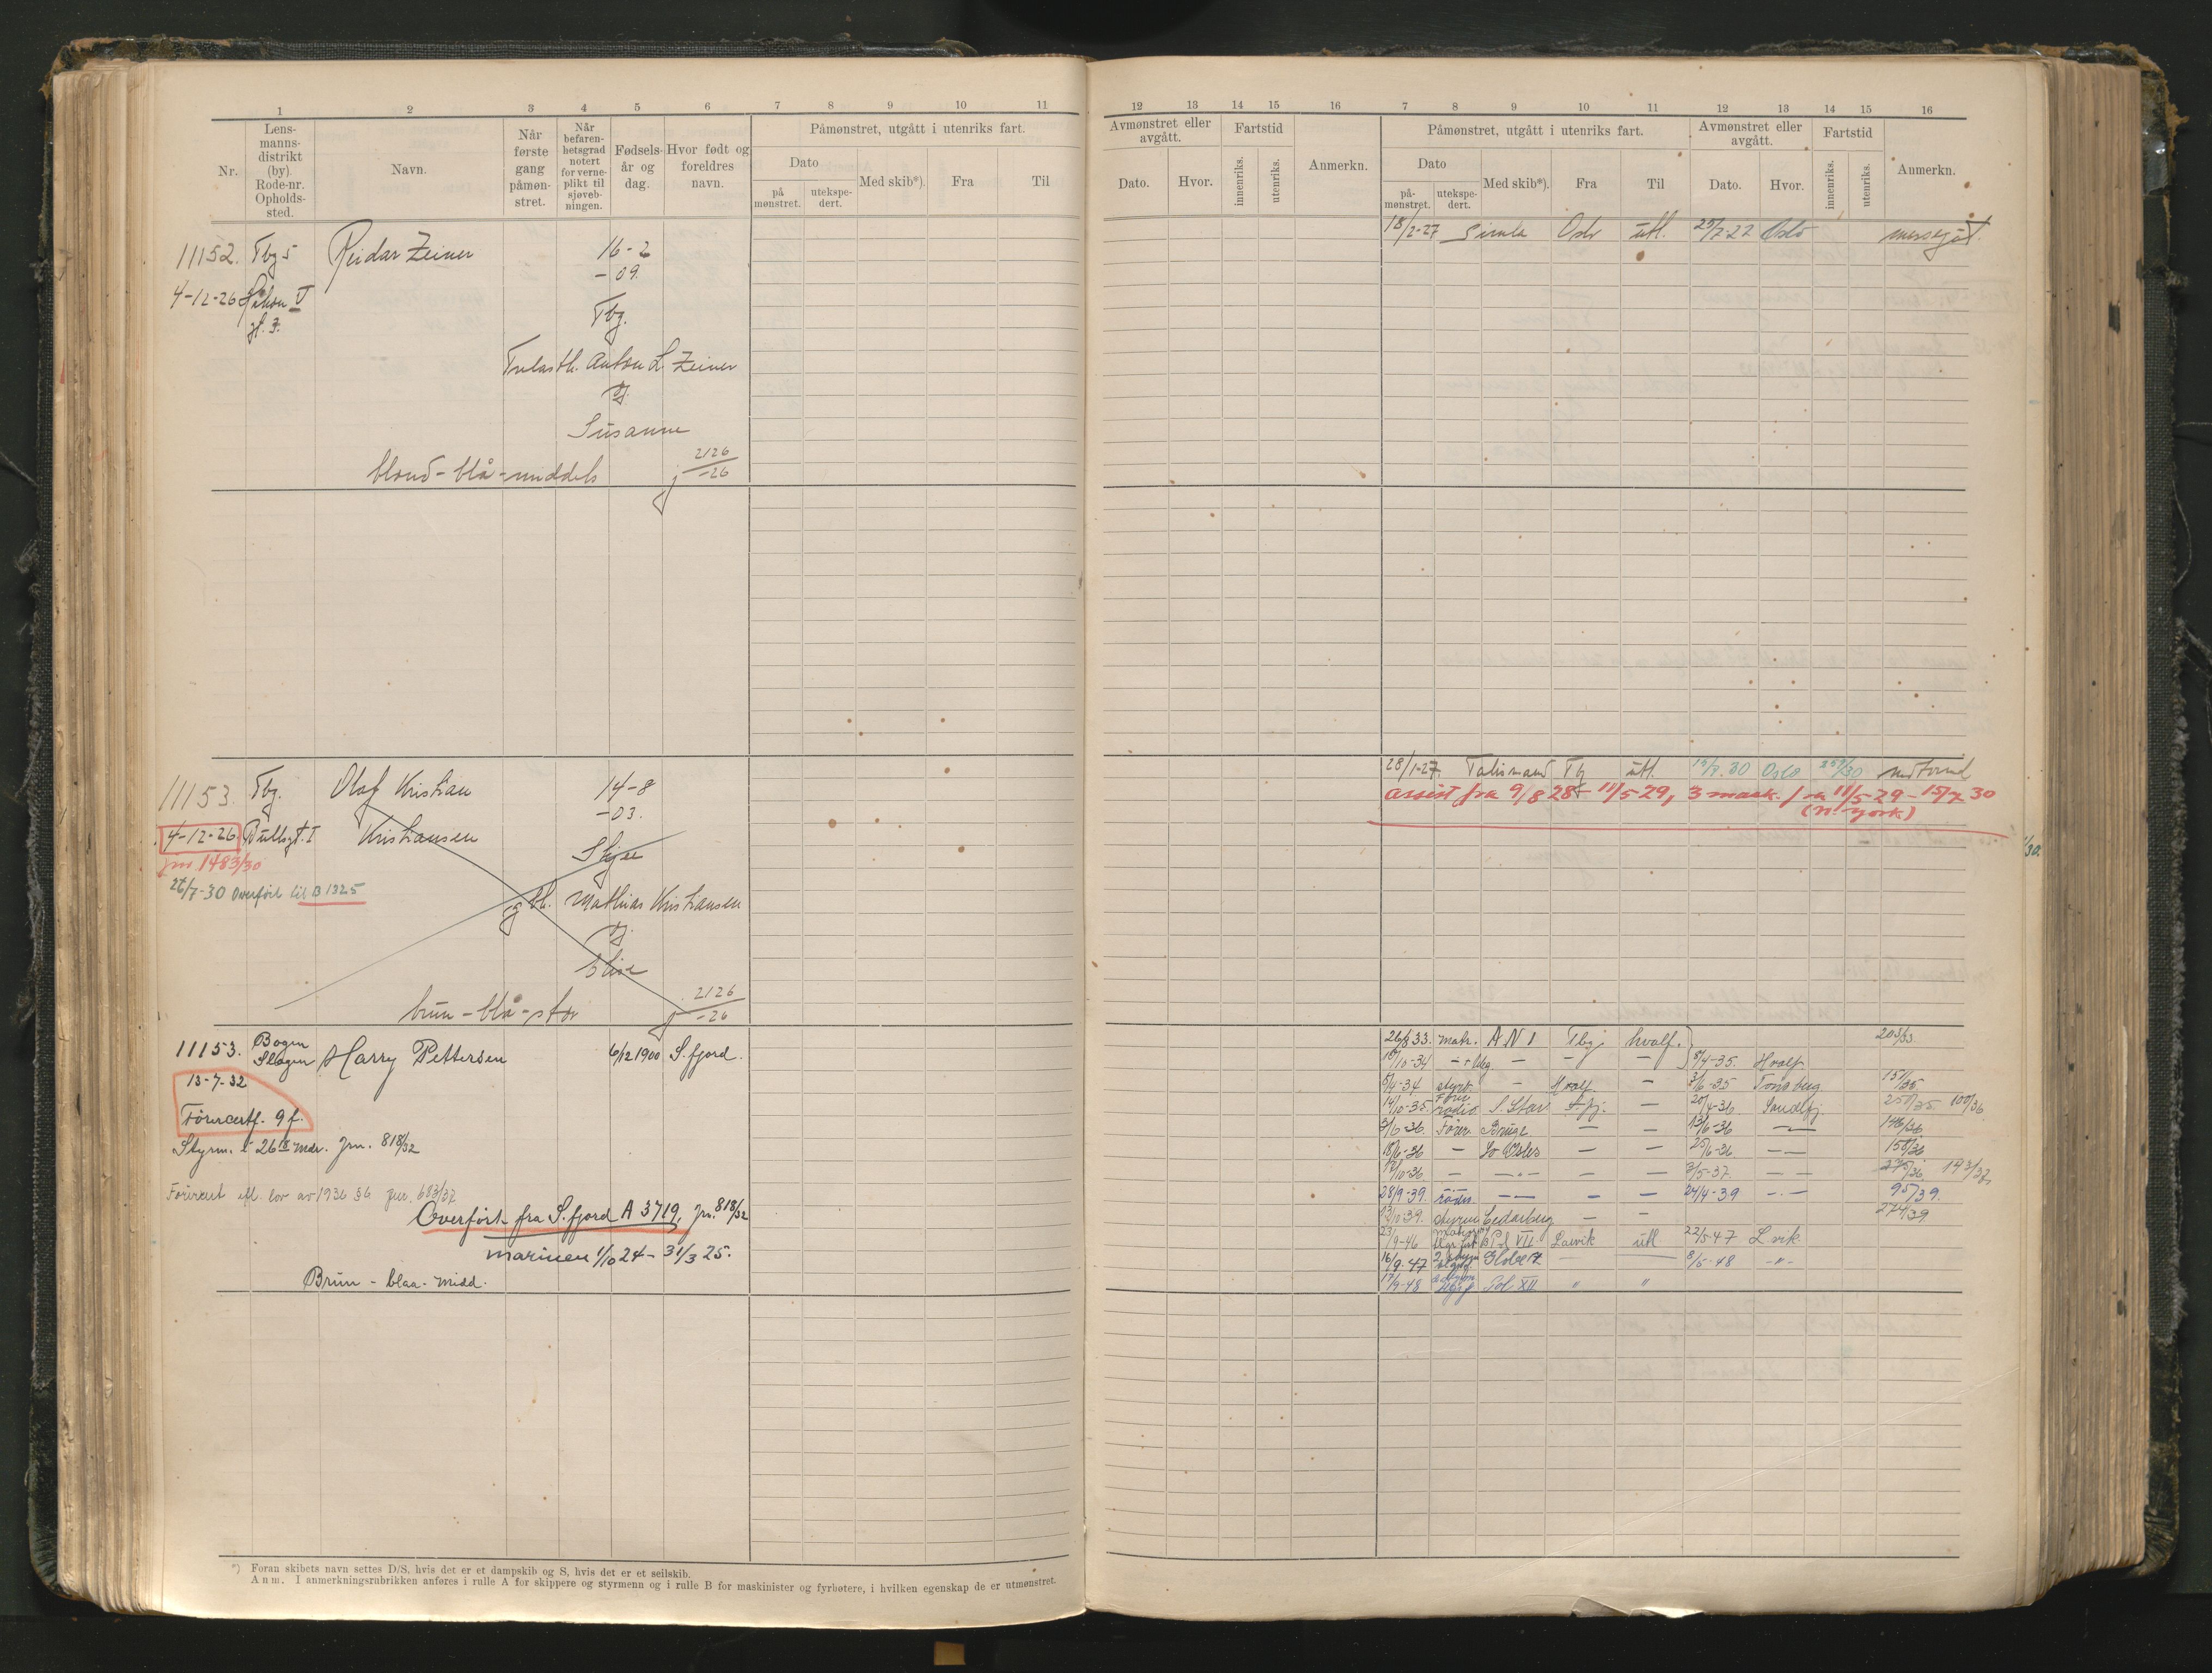 1 2 3 4 5 6 7 8 9 10 11
Nr.
Lens-
manns-
distrikt
(by).
Rode-nr.
Opholds-
sted.
Navn.
Når
første
gang
påmøn-
stret.
Når
befaren-
hetsgrad
notert
for verne-
plikt til
sjøveb-
ningen.
Fødsels-
år og
dag.
Hvor født og
foreldres
navn.
Påmønstret, utgått i utenriks fart.
Dato
på
mønstret.
utekspe-
dert.
Med skib*).
Fra
Til
11152. Tbg 5 Reidar Zeiner 16-2
-09.
4-12-26 Håkon V
gt. 7.
Tbg.
Trelasth. Anton L. Zeiner
og
Susanne
blond - blå - middels j 2126/-26
11153. Tbg. Olaf Kristian 14-8
-03.
4-12-26 Bullsgt. I Kristiansen
jnr 1483/30
Skjee
22/7-30 Overført til B 1325
Mathias Kristiansen
og
Elise
brun - blå - stor j 2126/-26
11153. Bogen
Slagen Harry Pettersen 6/12 1900 S.fjord.
13-7-32
Førercertf. 9 f.
Styrm. i 26 18 mdr. Jnr. 818/32
Førercert efl. lov av 1936 §6 jnr. 683/37
Overført fra S.fjord A 3719, jnr. 818/32
marinen 1/10 24 - 31/3 25.
Brun - blaa - midd.
*) Foran skibets navn settes D/S, hvis det er et dampskib og S, hvis det er et seilskib.
Anm. I anmerkningsrubrikken anføres i rulle A for skippere og styrmenn og i rulle B for maskinister og fyrbøtere, i hvilken egenskap de er utmønstret.
12 13 14 15 16 7 8 9 10 11 12 13 14 15 16
Avmønstret eller
avgått.
Dato.
Hvor.
Fartstid
innenriks.
utenriks.
Anmerkn.
Påmønstret, utgått i utenriks fart.
Dato
på-
mønstret.
utekspe-
dert.
Med skib*).
Fra
Til
Avmønstret eller
avgått.
Dato.
Hvor.
Fartstid
innenriks.
utenriks.
Anmerkn.
18/2-27 Simla Oslo utl. 25/7-27 Oslo messegut.
28/1-27. Talismand Tbg utl. 15/7.30 Oslo
assist fra 9/8 28 - 11/5 29, 3 mask. fra 11/5 29 - 15/7 30
(N. York)
1/30.
26/8 33. matr. A N 1 Tbg. hvalf. 203/33
18/10-34 - - - 8/4-35. Hvalf
5/4-34 styrb - Hvalf - 3/6-35 Tønsberg 151/35
14/10-35. radio S. Star S.fj. - 20/4-36 Sandefj. 250/35. 100/36
2/6-36. Fører Bruge - - 13/6-36 - 146/36
18/6-36 - - - 25/6-36 - 158/36
12/10-36. - - - - 3/5-37. - 275/36 193/37
28/9-39. - - - 24/4-39 - 95/39.
13/10 39. styrm Cedarberg - - 274/39
23/9-46 Pol VII Larvik utl 22/5-47 L.vik.
16/9-47 2 styrm Globe 7 8/5-48 - " -
17/9-48 Pol XII " "